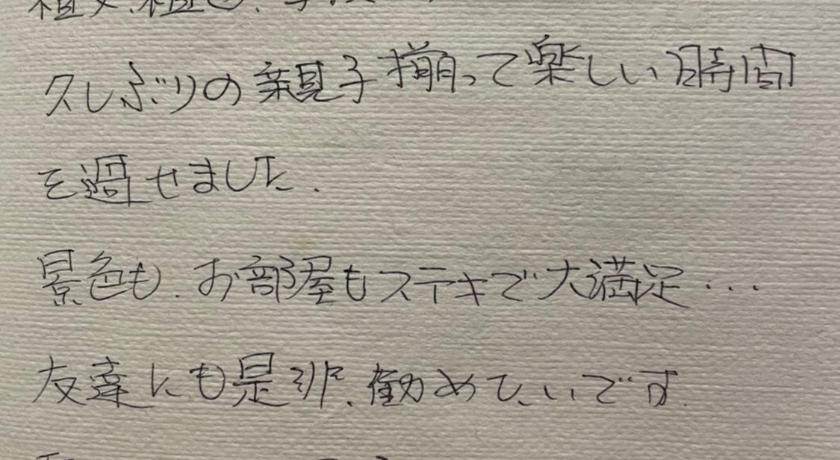 久しぶりの親子揃って楽しい時間
を過せました.
景色も.お部屋もステキで大満足...
友達にも是非、勧めたいです.